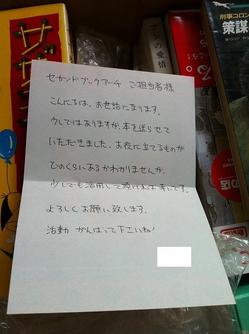 セカンドブックアーチ ご担当者様
こんにちは、お世話になります。
少しではありますが、本を送らせて
いただきました。お役に立てるものが
どのくらいあるかわかりませんが、
少しでも活用して頂ければ幸いです。
よろしくお願い致します。
活動 がんばって下さいね!
の愛情
刑事コロンボ
策謀